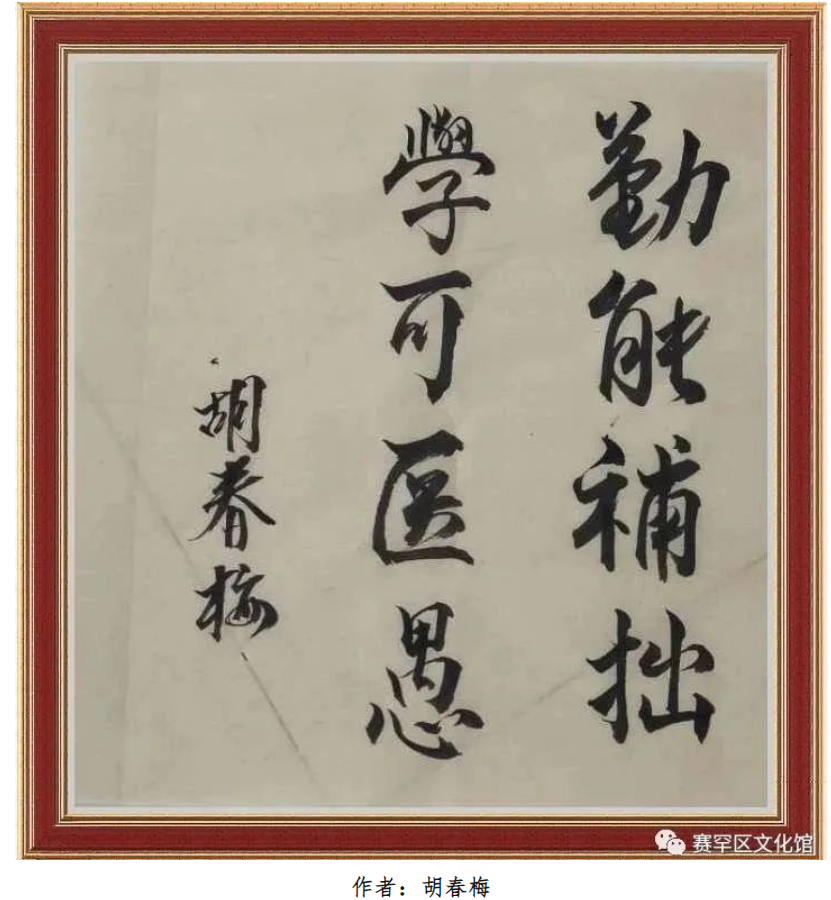 勤能補拙
學可医愚
胡春梅
赛罕区文化馆
作者：胡春梅